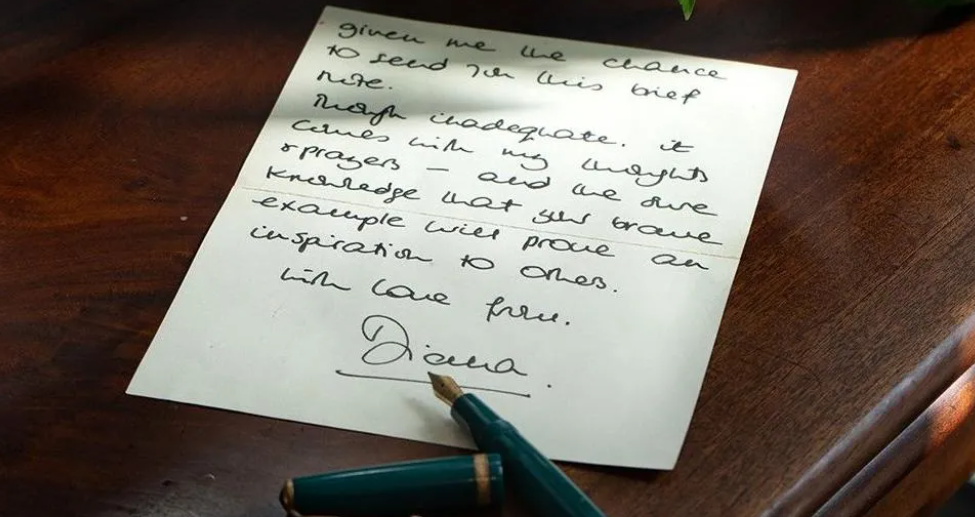 given me the chance
to send you this brief
note.
Though inadequate. it
comes with my thoughts
& prayers – and the sure
knowledge that your brave
example will prove an
inspiration to others.
with love from.
Diana.